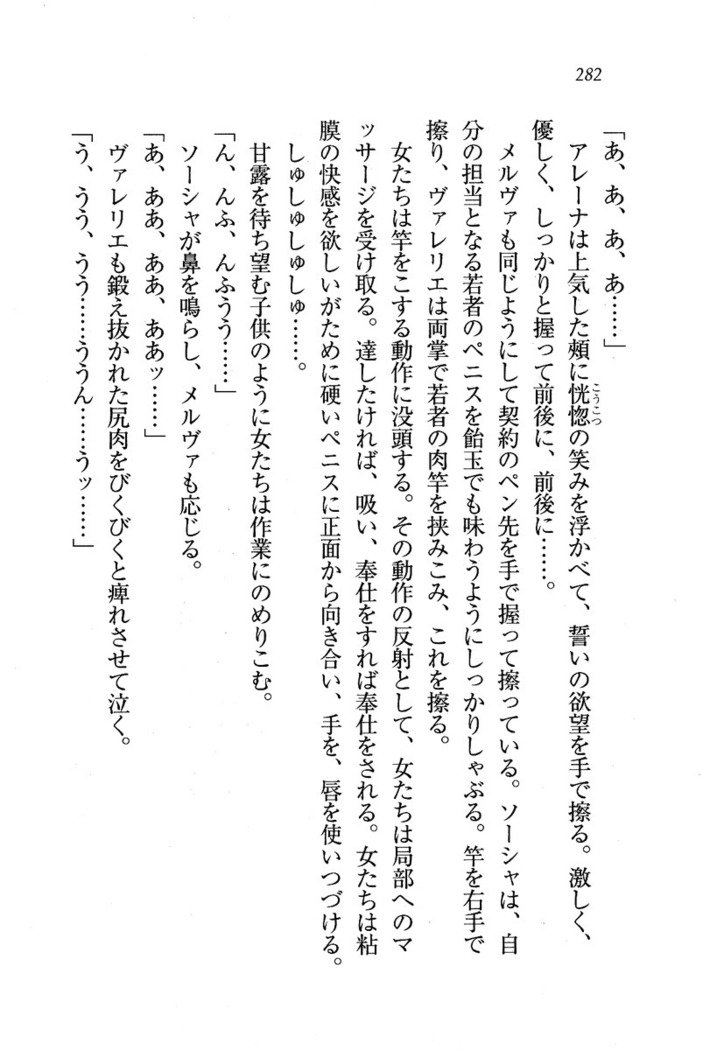 282
「あ、あ、あ、あ……」
アレーナは上気した頰に恍惚の笑みを浮かべて、誓いの欲望を手で擦る。激しく、
こうこつ
優しく、しっかりと握って前後に、前後に……。
メルヴァも同じようにして契約のペン先を手で握って擦っている。ソーシャは、自
分の担当となる若者のペニスを飴玉でも味わうようにしっかりしゃぶる。竿を右手で
擦り、ヴァレリエは両掌で若者の肉竿を挟みこみ、これを擦る。
女たちは竿をこする動作に没頭する。その動作の反射として、女たちは局部へのマ
ッサージを受け取る。達したければ、吸い、奉仕をすれば奉仕をされる。女たちは粘
膜の快感を欲しいがために硬いペニスに正面から向き合い、手を、唇を使いつづける。
しゅしゅしゅしゅ……。
甘露を待ち望む子供のように女たちは作業にのめりこむ。
「ん、んふ、んふうう……」
ソーシャが鼻を鳴らし、メルヴァも応じる。
「あ、ああ、ああ、ああッ……」
ヴァレリエも鍛え抜かれた尻肉をびくびくと痺れさせて泣く。
「う、うう、うう……ううん……うッ……」